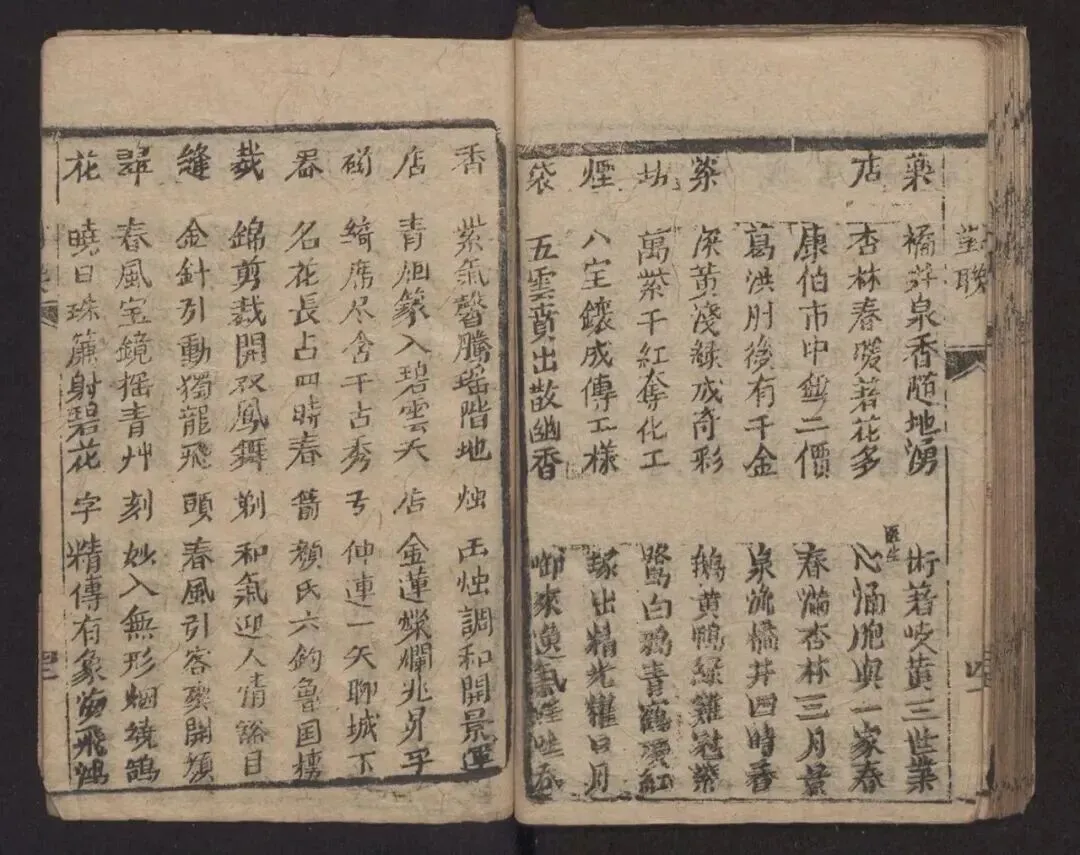 對聯
藥 橘井泉香随地湧 術著岐黄三世業
店 杏林春暖著花多 医生 心涌胞與一家春
康伯市中無二價 春滿杏林三月景
葛洪肘後有千金 泉流橘井四時香
染 深黄淺緑成奇彩 鵝黄鴨緑雞冠紫
坊 萬紫千紅奪化工 鷺白鴉青鶴頂紅
煙 八宝鑲成傳工樣 琢出精光耀日月
袋 五雲賁出散幽香 啣來氣
香 紫氣馨騰瑶階地 烛 玉烛調和開景運
店 青烟篆入碧雲天 店 金蓮燦爛兆昇平
磁 綺席尽含千古秀 弓 仲連一矢聊城下
器 名花長占四時春 箭 顏氏六鈞魯国樓
裁 錦剪裁開双鳳舞 剃 和氣迎人清目
縫 金針引動獨龍飛 頭 春風引客樂開顏
春風宝鏡摇青艸 刻 妙入無形烟繞鴿
花 曉日珠簾射碧花 字 精傳有象飛鴻